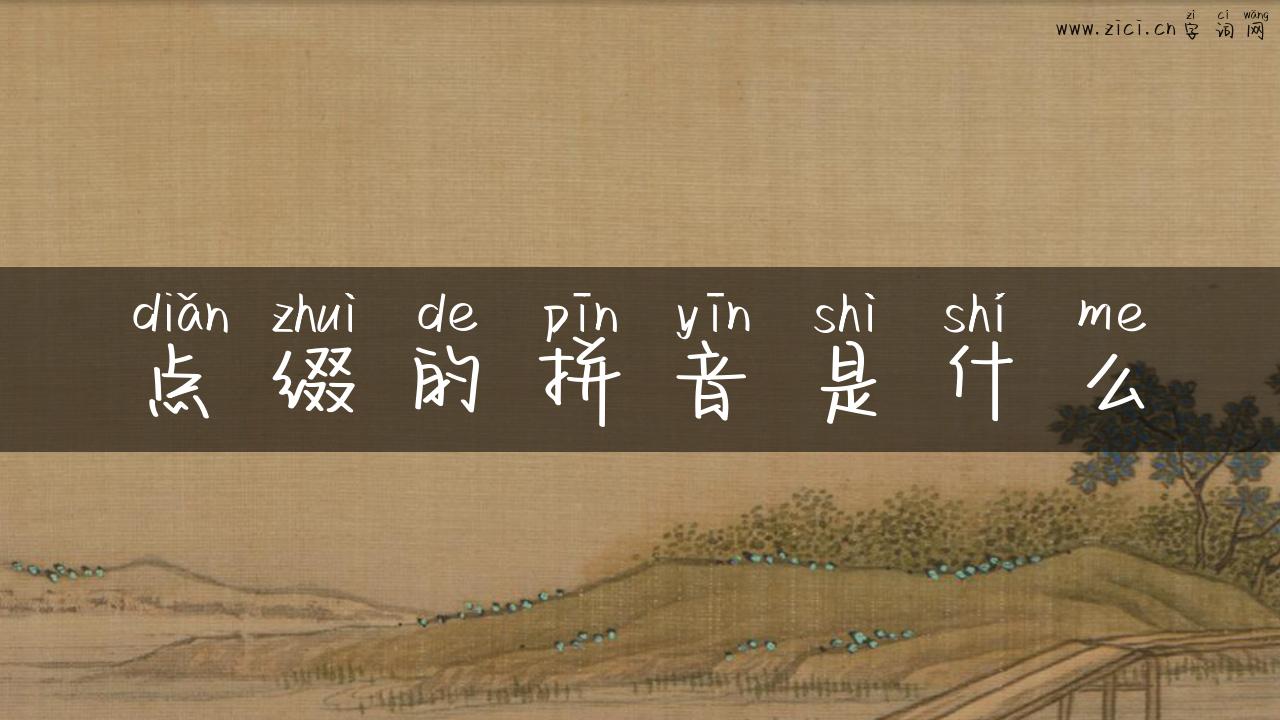 zì cí wǎng
www.zici.cn字词网
diǎn zhuì de pīn yīn shì shí me
点缀的拼音是什么